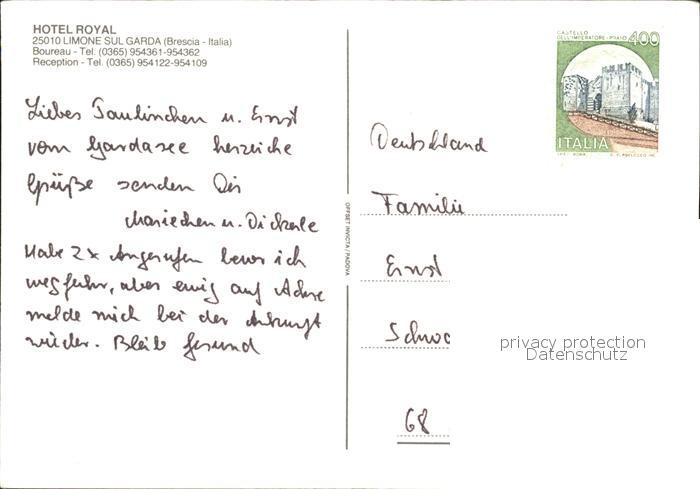 HOTEL ROYAL
25010 LIMONE SUL GARDA (Brescia - Italia)
Boureau - Tel. (0365) 954361-954362
Reception - Tel. (0365) 954122-954109
Liebes Paulinchen u. Ernst
vom Gardasee herzliche
Grüße senden Dir
Mariechen u. Dickerle
Habe 2x Angerufen bevor ich
wegfuhr, aber ewig auf
melde mich bei der Ankunft
wieder. Bleib Gesund
OFFSET INVICTA / PADOVA
CASTELLO
DELL'IMPERATORE - PRATO 400
ITALIA
Deutschland
Familie
Ernst
Schwo
68
privacy protection
Datenschutz